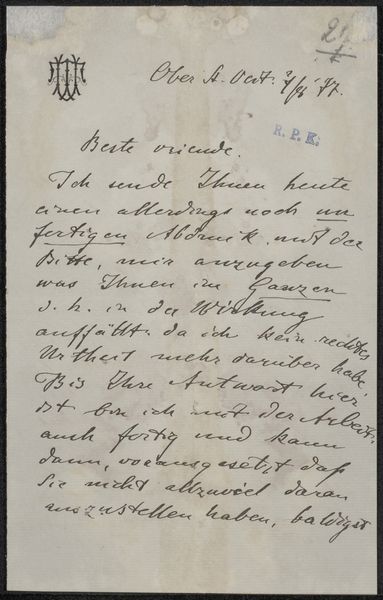 Ober St. Veit. 7/8 77.
R. P. K.
Beste vriende.
Ich sende Ihnen heute
einen allerdings noch un
fertigen Abdruck mit der
Bitte, mir anzugeben
was Ihnen im Ganzen
d. h. in der Wirkung
auffällt. da ich kein rechtes
Urtheil mehr darüber habe.
Bis Ihre Antwort hier
ist bin ich mit der Arbeit
auch fertig und kann
dann, vorausgesetzt daß
Sie nicht allzuviel daran
auszustellen haben, baldigst